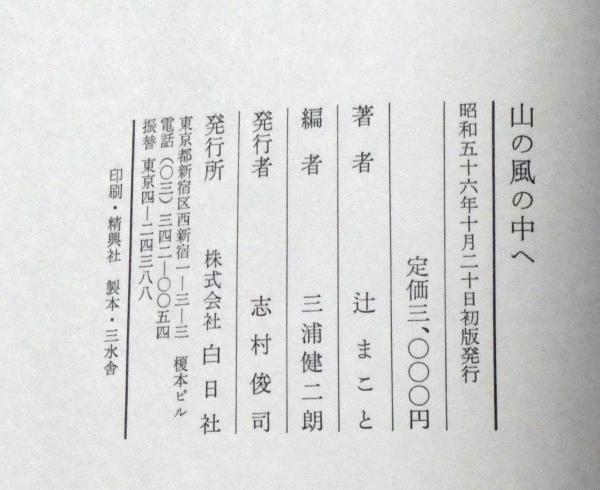 山の風の中へ
昭和五十六年十月二十日初版発行
定価三、〇〇〇円
著者 辻まこと
編者 三浦健二朗
発行者 志村俊司
発行所 株式会社 白日社
東京都新宿区西新宿一―三―三 榎本ビル
電話(〇三)三四二―〇〇五四
振替 東京四―二四三八八
印刷・精興社 製本・三水舎